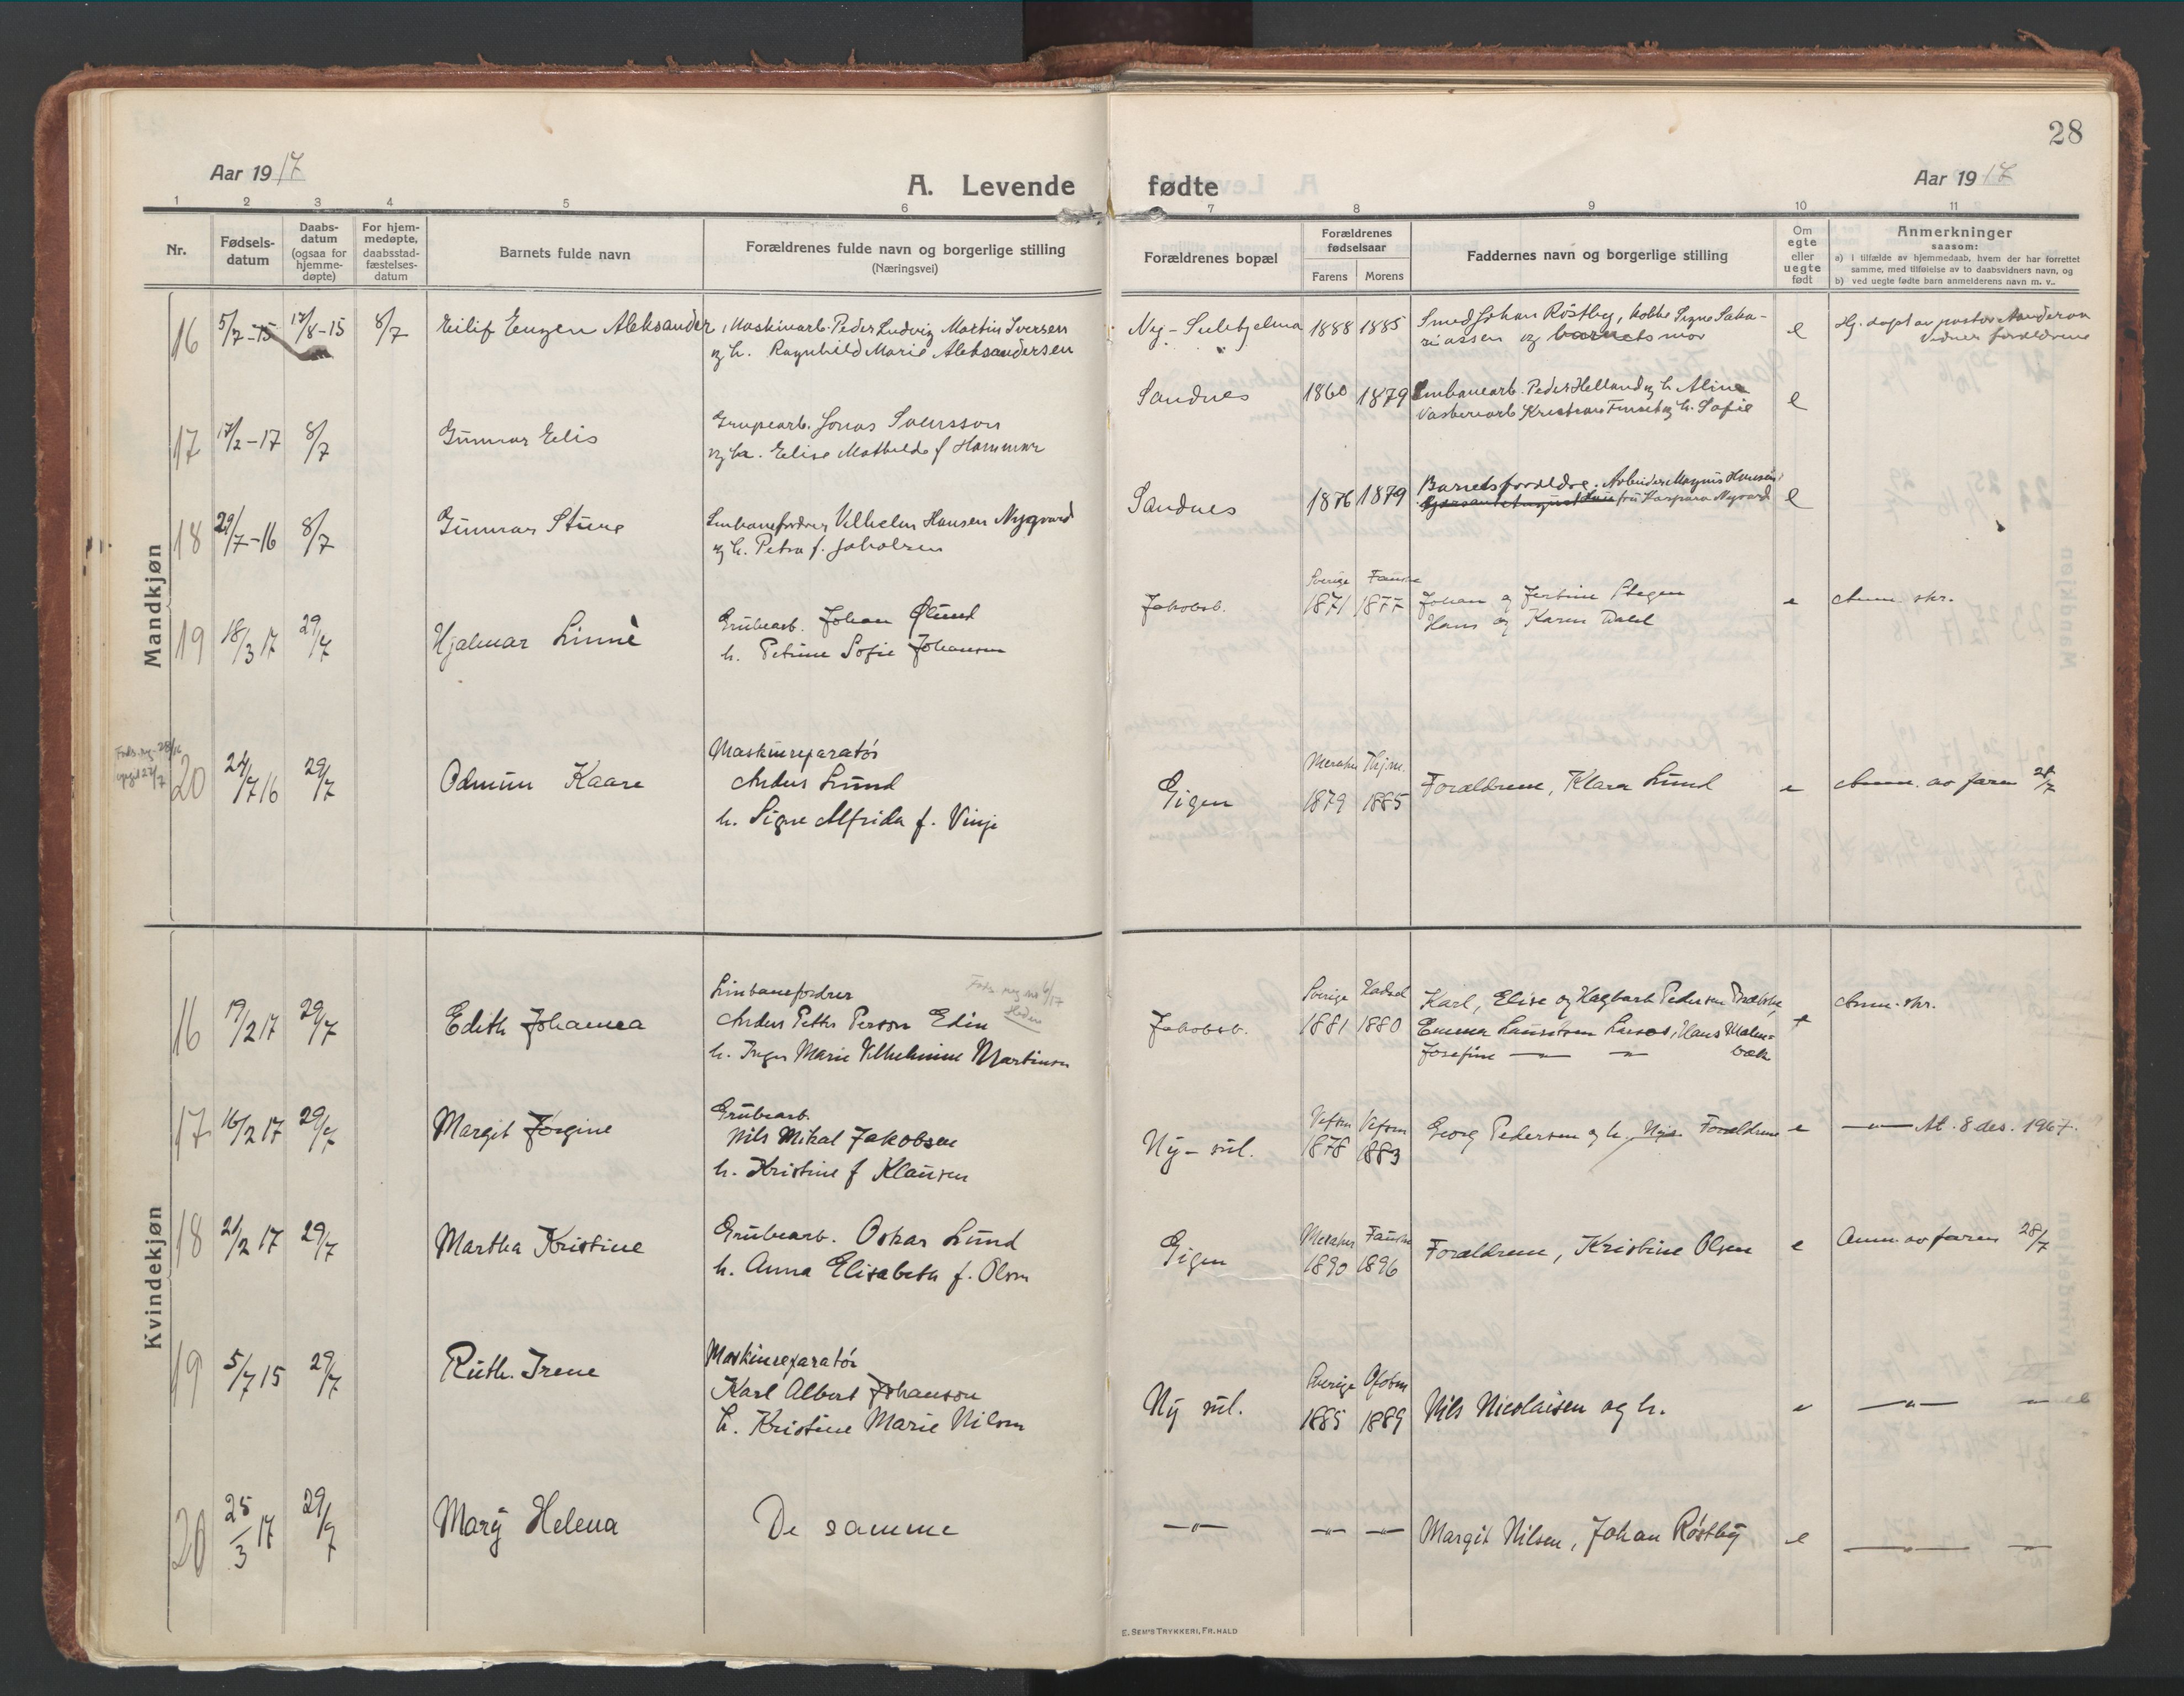 28
Aar 1917
A. Levende fødte
Aar 1917
1 2 3 4 5 6 7 8 9 10 11
Nr.
Fødsels-
datum
Daabs-
datum
(ogsaa for
hjemme-
døpte)
For hjem-
medøpte,
daabsstad-
fæstelses-
datum
Barnets fulde navn
Forældrenes fulde navn og borgerlige stilling
(Næringsvei)
Forældrenes bopæl
Forældrenes
fødselsaar
Farens Morens
Faddernes navn og borgerlige stilling
Om
egte
eller
uegte
født
Anmerkninger
saasom:
a) i tilfælde av hjemmedaab, hvem der har forrettet
samme, med tilføielse av to daabsvidners navn, og
b) ved uegte fødte barn anmelderens navn m. v..
Mandkjøn
16 5/7-15 17/8-15 8/7 Eilif Eugen Aleksander, Maskinarb. Peder Ludvig Martin Iversen
og h. Ragnhild Marie Aleksandersen
Ny-Sulitjelma 1888 1885 Smed Johan Röstby, Signe Saka-
riassen og barnets mor e
Hj. døpt av pastor
Vidner forældrene
17 17/2-17 8/7 Gunnar Elis
Grupearb. Jonas Svensson
og h. Elise Mathilde f Hammar
Sandnes 1860 1879 Linbanearb. Peder Helland og h. Aline
Vaskeriarb. Kristian Furset og h. Sofie e
18 29/7-16 8/7 Gunnar Sture
Linbanefordrer Vilhelm Hansen Nygaard
og h. Petra f. Jakobsen
Sandnes 1876 1879 Barnets forældre. Arbeider Magnus Hansen
fru Kaspara Nygaard e
19 18/3 17 29/7 Hjalmar Linnè
Grubearb. Johan Ølund
h. Petrine Sofie Johansen
Jakobsb. Sverige 1871 Fauske 1877
Johan og Jentine Stegen
Hans og Karen Dahl e Anm. skr.
Føds.
opgit 27/7
20 24/7 16 29/7 Odmun Kaare
Maskinreparatør
Anders Lund
h. Signe Alfrida f. Vinje
Gigen 1879 1885 Forældrene, Klara Lund e Anm. av faren 28/7
Kvindekjøn
16 19/2 17 29/7 Edith Johanna
Linbanefordrer
Anders Petter Person Edin
h. Inger Marie Vilhelmine Martinsen
Jakobsb. Sverige 1881 Hadsel 1880
Karl, Elise og Hagbart Pedersen
Emma Hans Malm-
Josefine —"— —"— bæk
Anm. skr.
17 16/2 17 29/7 Margit Jørgine
Grubearb.
Nils Mikal Jakobsen
h. Kristine f Klausen
Ny-sul. Vefsn 1878 Vefsn 1883
Georg Pedersen og h. Forældrene e —"— At. 8 des. 1967.
18 21/2 17 29/7 Martha Kristine
Grubearb. Oskar Lund
h. Anna Elisabeth f. Olsen
Gigen 1890 Fauske 1896
Forældrene, Kristine Olsen e Anm. av faren 28/7
19 5/7 15 29/7 Ruth Irene
Maskinreparatør
Karl Albert Johanson
h. Kristine Marie Nilsen
Ny sul. Sverige 1885 Ofoten 1889
Nils Nicolaisen og h. e —"— —"—
20 25/3 17 29/7 Mary Helena
De samme
—"— —"— —"— Margit Nilsen, Johan Røstby e —"— —
E. SEM'S TRYKKERI, FR.HALD